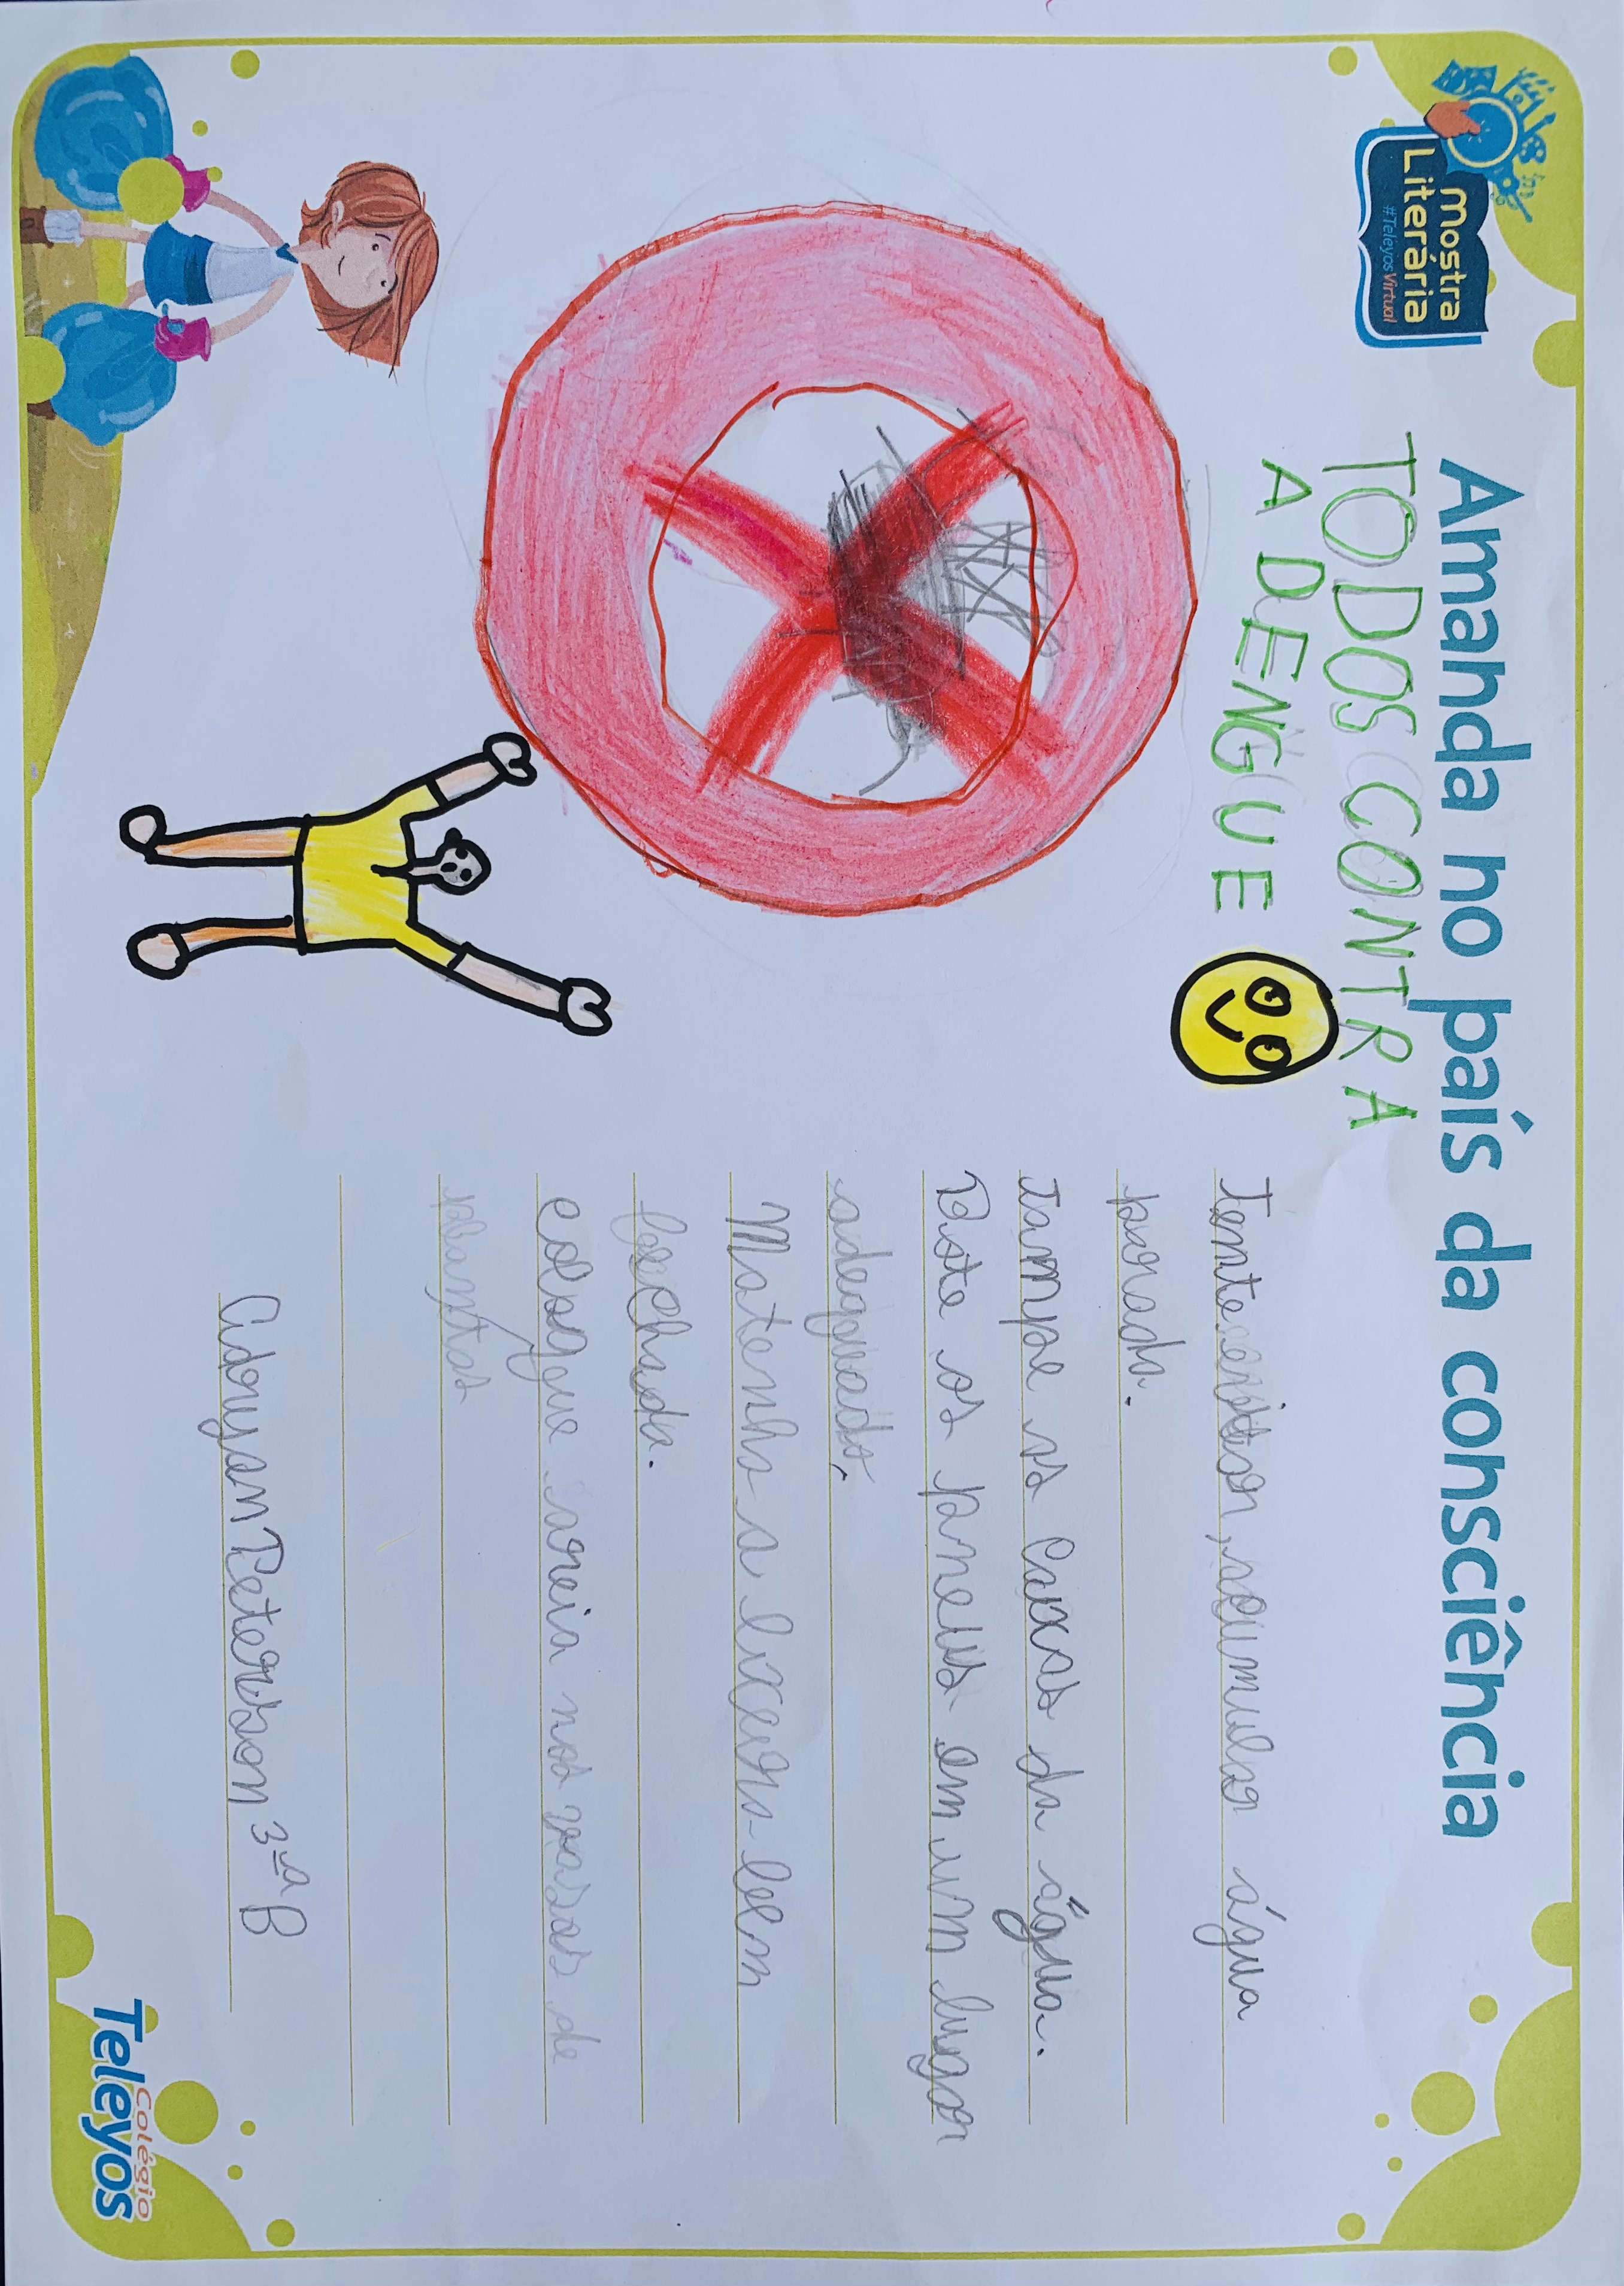 Mostra
Literária
#TeleyosVirtual
Amanda no país da consciência
TODOS CONTRA
A DENGUE
Tente evitar, acumular água
parada.
Tampe as caixas da água.
Bote os pneus em um lugar
adequado,
Matenha a lixeira bem
fechada.
coloque areia nos vasos de
plantas
Adryan Peterson 3ª B
Colégio
Teleyos